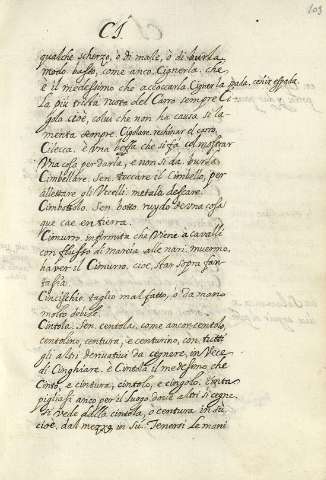 103
C I.
qualche scherzo, ò di male, ò di burla
molto basso, come anco Cignerla, che
è il medessimo che accoccarla. Cigner la spada. ceñir espada.
La piu trista ruota del Carro sempre Ci-
gola cioè, colui che non ha causa si la-
menta sempre. Cigolare. rechinar el carro.
Cilecca, è una beffa che si fà col mostrar
Una cosa per darla, e non si da. burla
Cimbellare. Sen. toccare il Cimbello, per
allettare gli Ucelli: metala
Cimbottolo. Sen. botto. ruydo de una cosa
que cae en tierra.
Cimurro, infirmità che Viene a cavalli
con flusso di marcia alle nari. muermo,
haver il Cimurro, cioè, star sopra fan-
tasia.
Cincischio. taglio mal fatto, ò da mano
molto debile.
Cintola. Sen. centola, come ancor centolo,
centolino, centura, e centurino, con tutti
gli altri derivativi da cegnere, in Vece
di Cinghiare. è Cintola il medesimo che
Cinto, e cintura, cintolo, e cingolo.
pigliasi anco per il luogo dove altri si cegne
si Vede dalla cintola, ò centura in sù
cioè, dal mezzo in su. Tenersi le mani